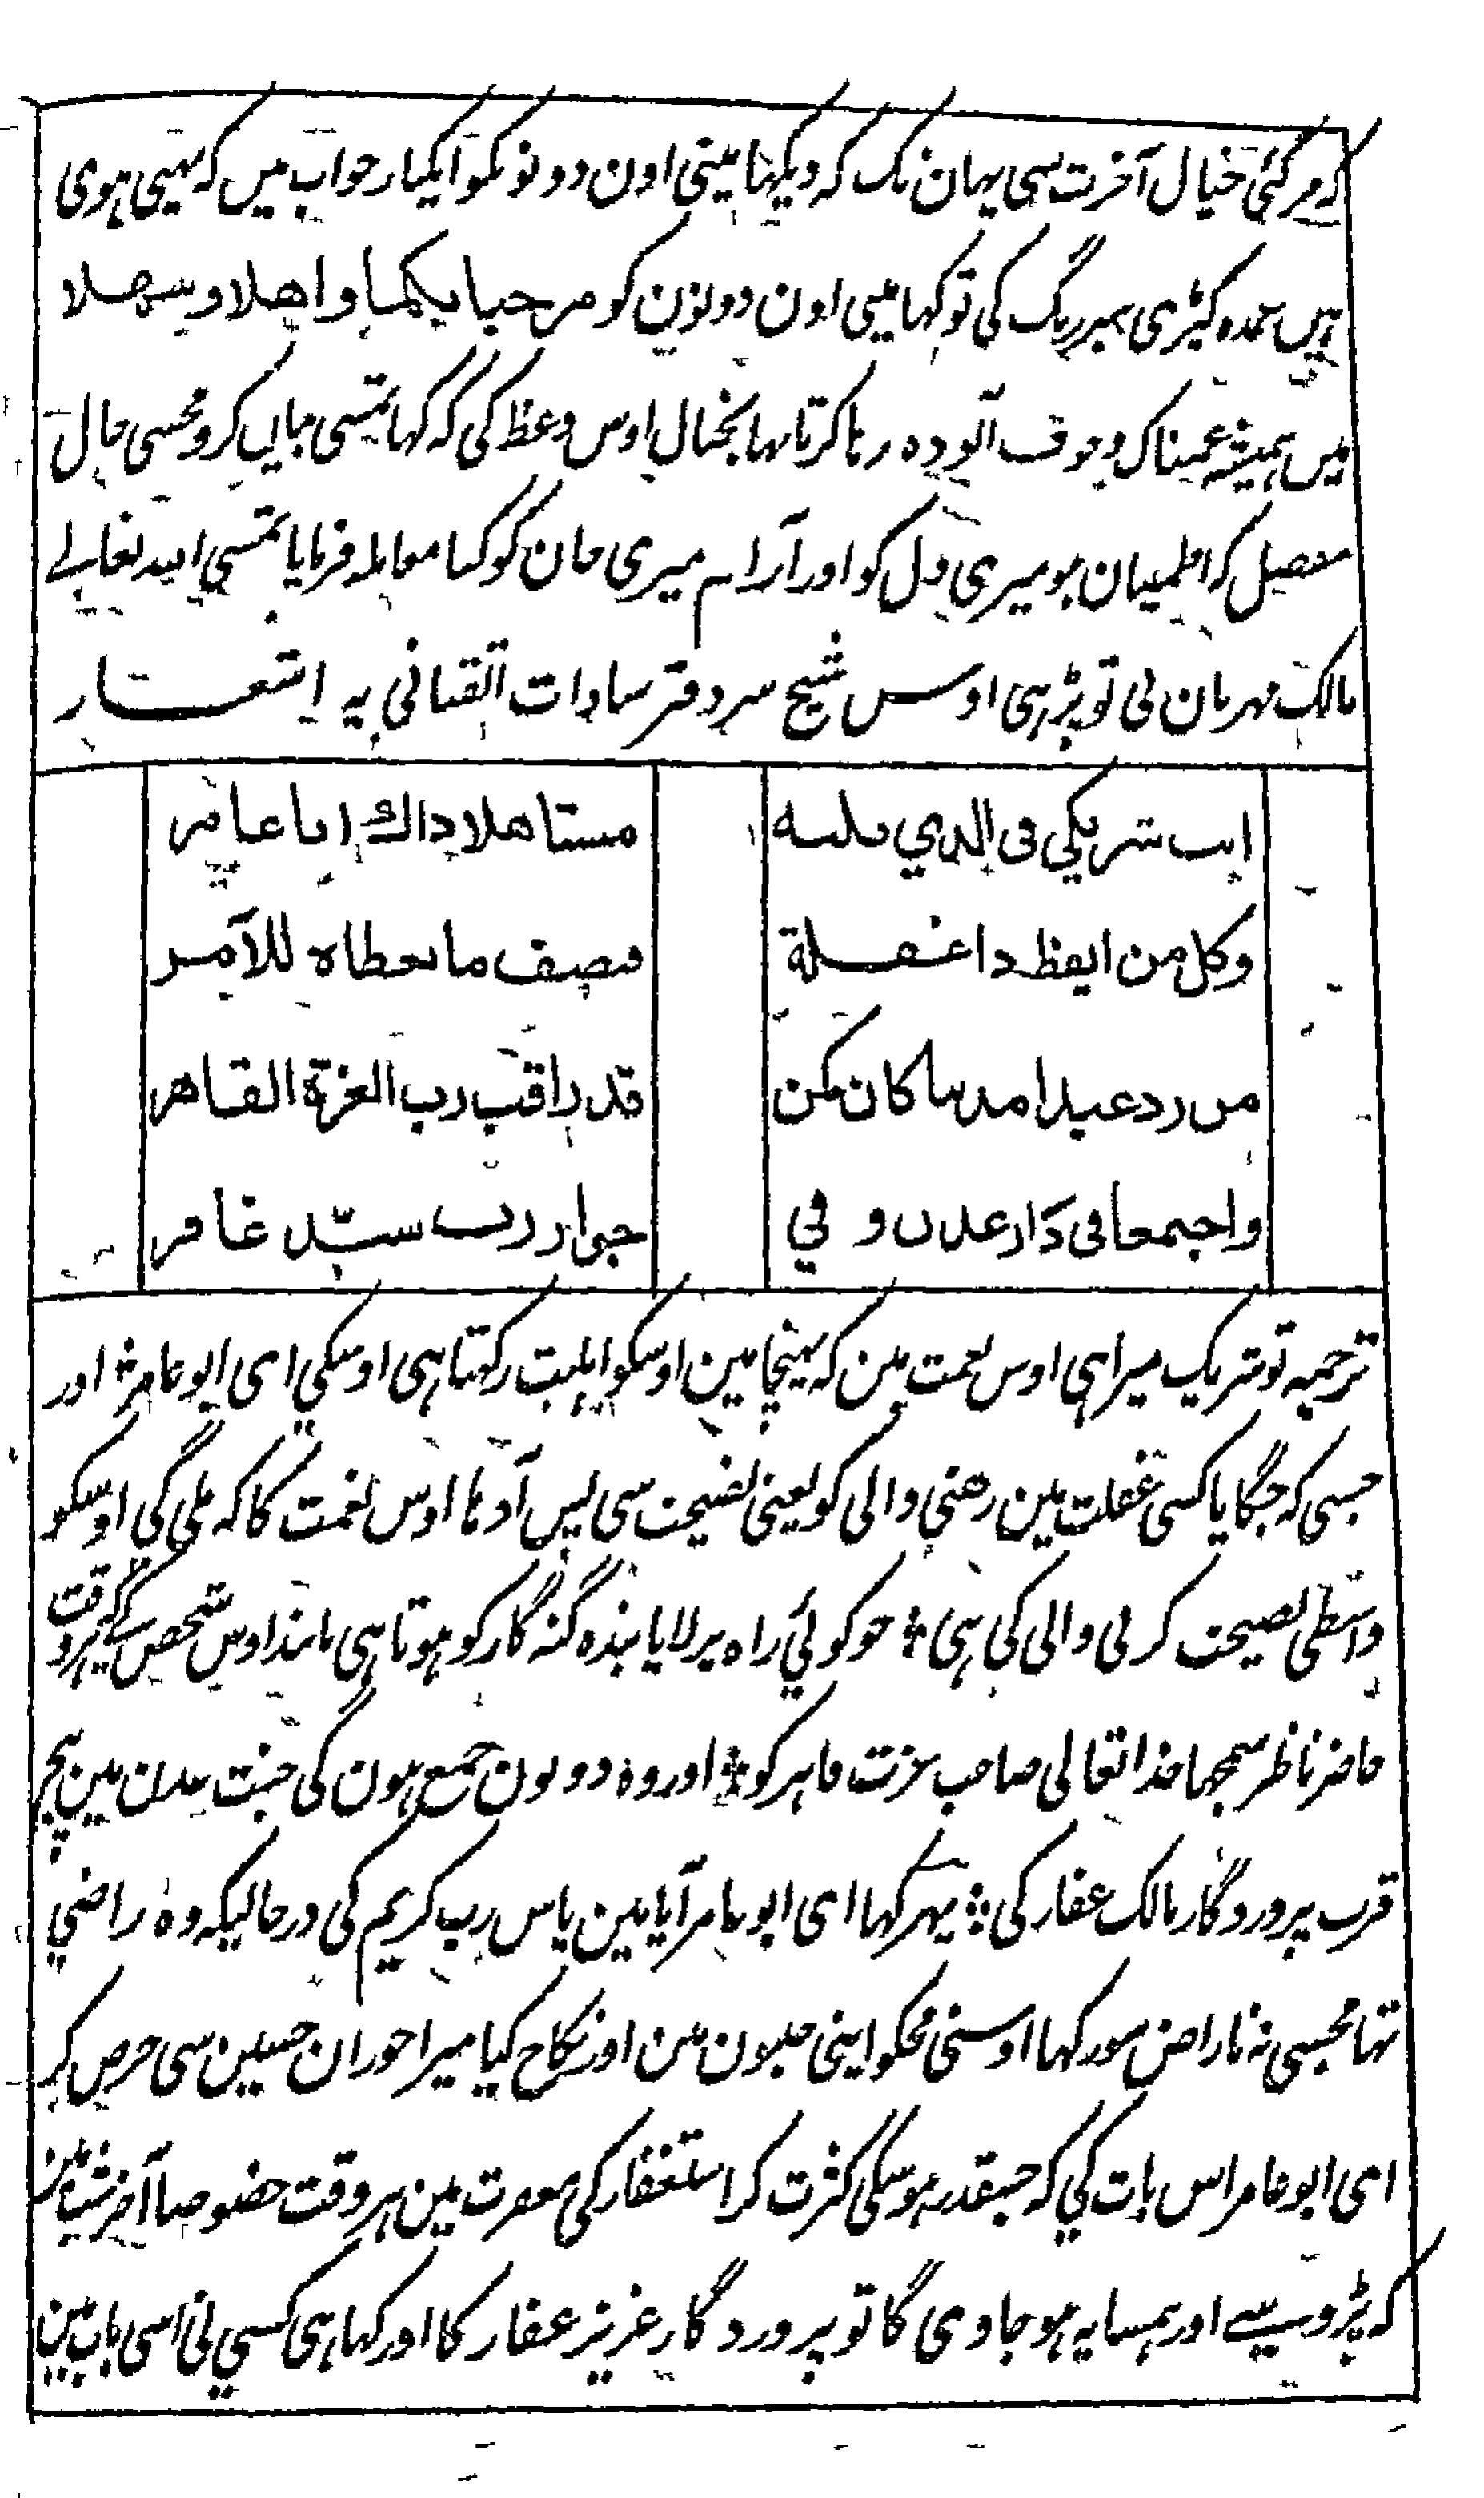 کہ مر گئی خیال آخرت سی یہان تک کہ دیکہا مینی اون دونونکو ایکبار خواب میں کہ پہنی ہوی
ہیں عمدہ کپڑی سبز رنگ کی تو کہا مینی اون دونون کو مرحبا بکما واهلا وسهلا
میں ہمیشہ غمناک وخوف آلودہ رہا کرتا تہا بخیال اوس وعظ کی کہ کہا تمسی بیان کرو مجسی حال
مفصل کہ اطمینان ہو میری دل کو اور آرام میری جان کو کیا معاملہ فرمایا تمسی اللہ تعالے
مالک مہربان نی تو پڑہی اوس شیخ سر دفتر سادات اتقیا نی یہ اشعار
انت شریکی فی الذي نلته مستاهلا ذاك ابا عامر
وكل من ايقظ ذا غفلة فنصف ما يعطاه للآمر
من رد عبدا مذنبا كان كمن قد راقب رب العزة القاهر
واجتمعا فی دار عدن و في جوار رب سيّد غافر
ترجمہ تو شریک میرا ہی اوس نعمت میں کہ پہنچا مین اوسکو اہلیت رکہتا ہی اوسکی ای ابو عامر ؞ اور
جسی کہ جگایا کسی غفلت مین رہنی والی کو یعنی نصیحت سی پس آدہا اوس نعمت کا کہ ملی گی اوسکو
واسطی نصیحت کرنی والی کی ہی ؞ جو کوئی راہ پر لایا بندہ گنہ گار کو ہوتا ہی مانند اوس شخص کے کہ ہروقت
حاضر ناظر سمجہا خدا تعالی صاحب عزت قاہر کو ؞ اور وہ دونون جمع ہون گی جنت عدن مین بیچ
قرب پروردگار مالک غفار کی ؞ پہر کہا ای ابو عامر آیا مین پاس رب کریم کی درحالیکہ وہ راضی
تہا مجسی نہ ناراض اور کہا اوسنی مجکو اپنی جنتون مین اور نکاح کیا میرا حوران حسین سی حرص کر
ای ابو عامر اس بات کی کہ جسقدر ہوسکی کثرت کر استغفار کی مغفرت مین ہر وقت خصوصا آخر شب مین
کہ پڑوسی اور ہمسایہ ہو جاوی گا تو پروردگار عزیز غفار کا اور کہا ہی کسی نی اسی باب مین